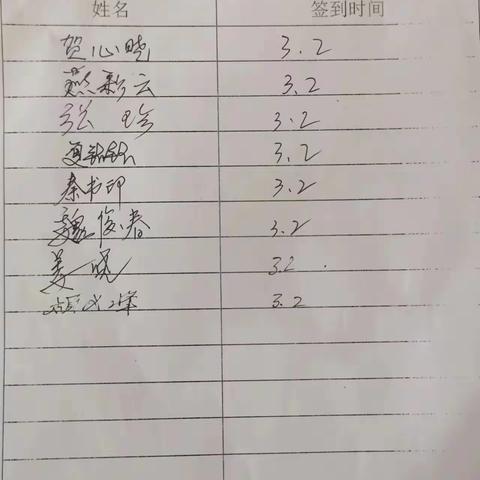 姓名 签到时间
贺心晓 3.2
燕彩云 3.2
张珍 3.2
夏 3.2
秦书印 3.2
魏俊春 3.2
姜晓 3.2
3.2